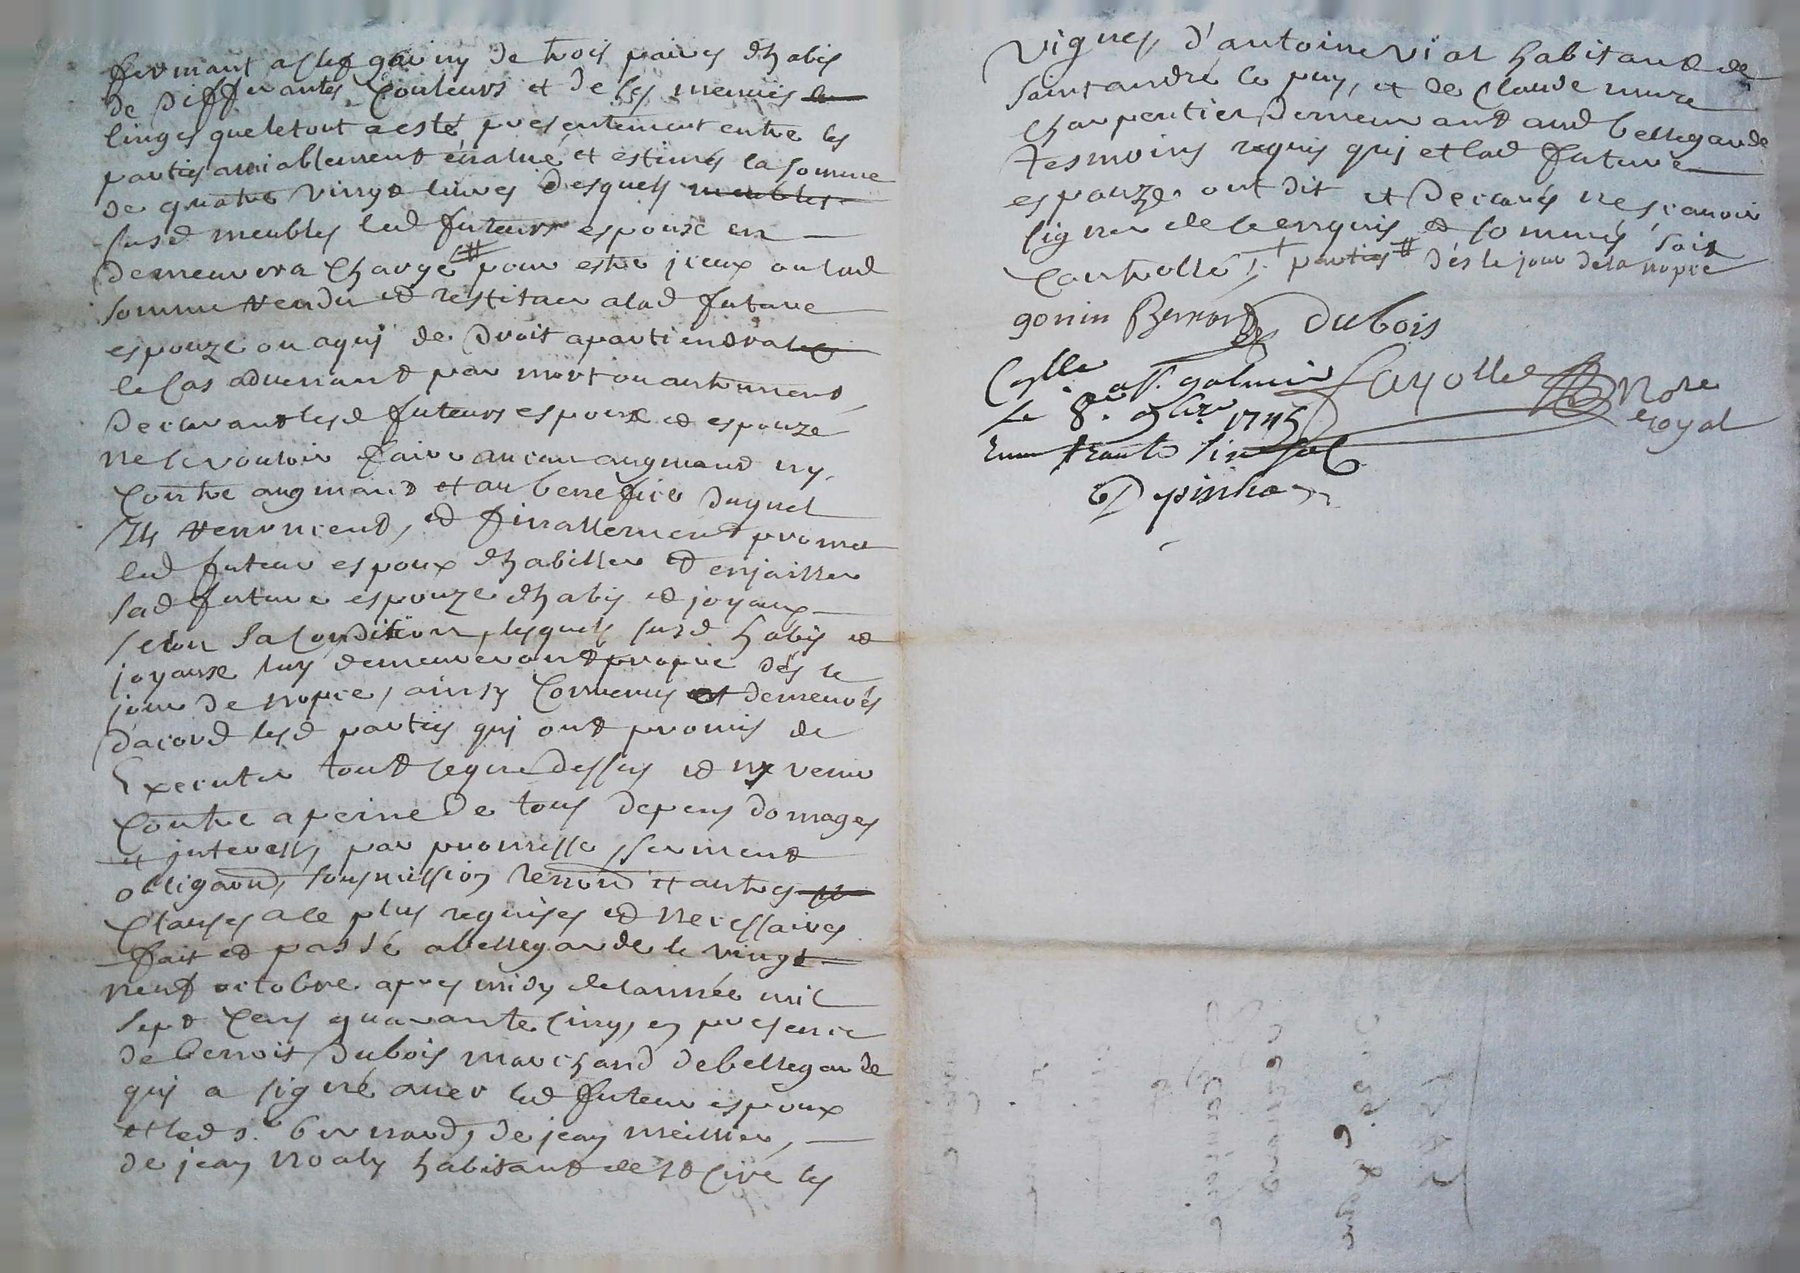 fermant a clef garny de trois paires d'habis
de differantes couleurs et de ses menus
linges que le tout a esté presentement entre les
parties amiablement évalué et estimés la somme
de quatre vingt livres desquels meubles
susd meubles led futeur espouse en
demeurera chargé # pour estre jceux ou lad
somme rendu et restituer a lad future
espouze ou a quj de droit apartiendra
le cas advenant par mort ou autrement
declarant lesd futeurs espoux et espouze
ne ce vouloir faire aucun augmand ny
contre augmand et au benefice duquel
Ils renoncent, et finallement promet
led futeur espoux d'habiller et enjoiller
sad future espouze d'habis et joyaux
selon sa condition, lesquels susd habis et
joyaux luy demeureront propre dés le
jour de nopce, ainsy convenus et demeurés
d'acord lesd parties quj ont promis de
Executer tout ce que dessus et ny venir
contre a peine de tous depens domages
et jnterests, par promesse, serment
obligaon, sousmission renond et autres
clauses a ce plus requises et necessaires
fait et passé a bellegarde le vingt
neuf octobre apres midy de lannée mil
sept cens quarante cinq, en presence
de benoit dubois marchand de bellegarde
quj a signé avec led futeur espoux
et led s. bernard, de jean meillier,
de jean noaly habitant de st ciré les
vignes, d'antoine vial habitant de
saint andré le puy, et de claude mure
charpentier demeurant aud bellegarde
tesmoins requis quj et lad future
espouze ont dit et declarés ne scavoir
signer de ce enquis et sommés soit
controllé † parties # dés le jour de la nopce
gonin Bernard dubois
Cllé
a st. galmier fayolle Nore
Le 8. 9bre. 1745 royal
Depinha